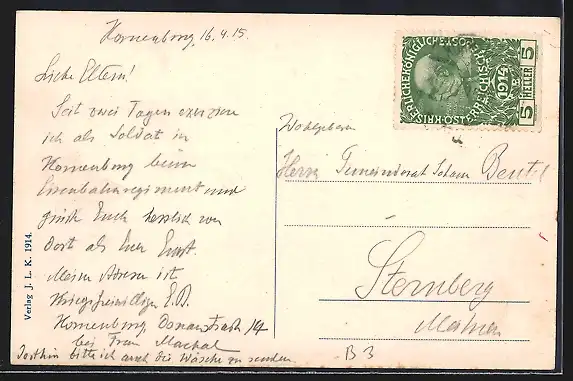 Korneuburg, 16.4.15.
Liebe Eltern!
Seit zwei Tagen exerziere
ich als Soldat in
Korneuburg beim
Eisenbahnregiment und
grüße Euch herzlich von
dort als Euer Ernst.
Meine Adresse ist
Kriegsfreiwilliger E.B.
Korneuburg Donaustraße 14
bei Frau Machal
Dorthin bitte ich auch die Wäsche zu senden.
Wohlgeboren
Herrn Gemeinderat Beutel
Sternberg
Mähren
B 3
KAISERLICHE KÖNIGLICHE ÖSTERREICHISCHE
1914
5 HELLER 5
Verlag J. L. K. 1914.